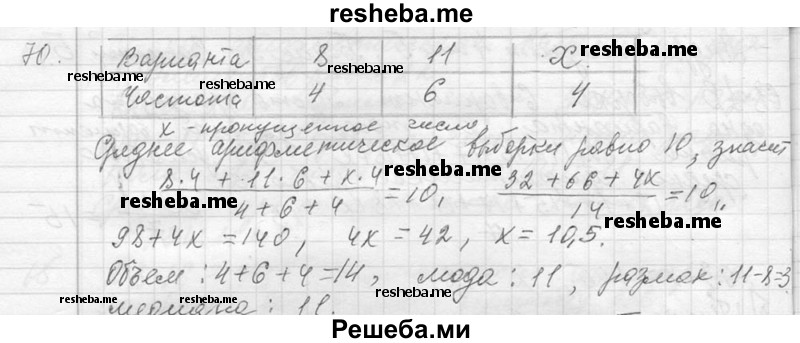 resheba.me
70. Варианта 8 11 X resheba.me
resheba.me
Частота 4 6 4
x - пропущенное число
resheba.me
Среднее арифметическое выборки равно 10, значит
: (8·4 + 11·6 + x·4)/(4+6+4) = 10, (32+66+4x)/14 = 10,,
resheba.me resheba.me
98+4x = 140, 4x = 42, x = 10,5.
Объем: 4+6+4=14, мода: 11, размах: 11-8=3
resheba.me resheba.me resheba.me
медиана: 11.
Решеба.ми